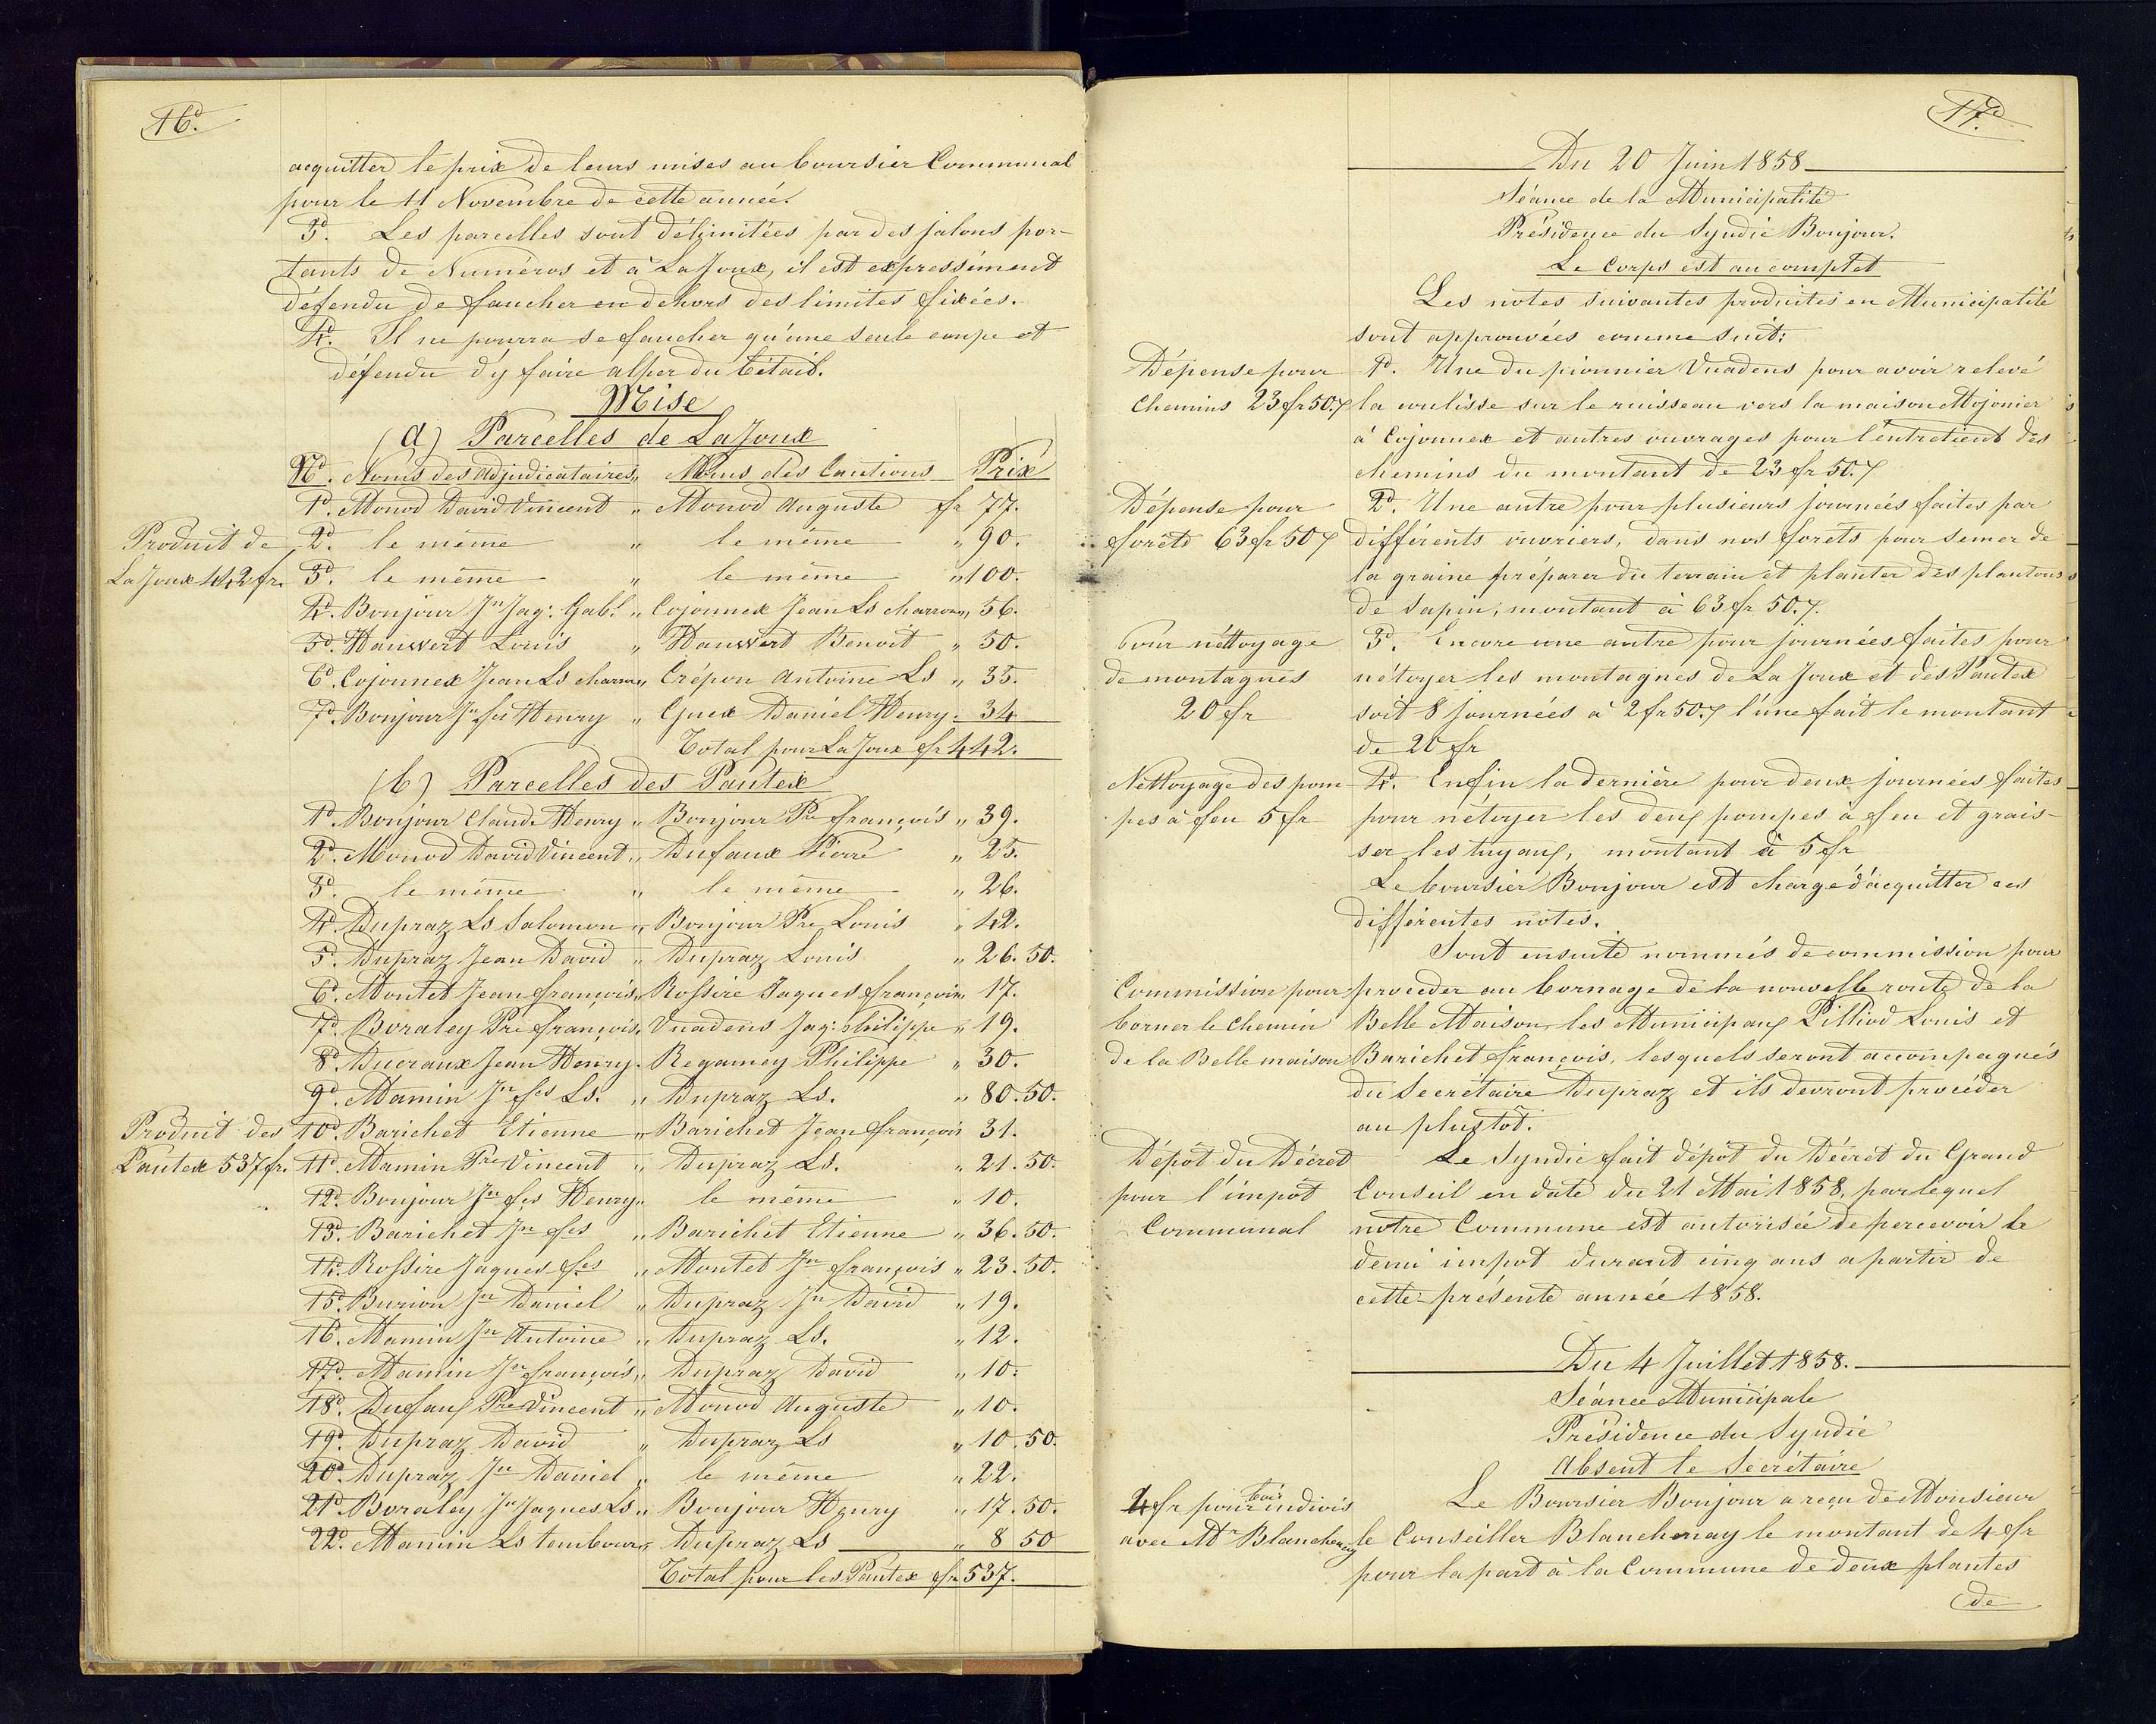 16.
acquitter le prix de leurs mises au boursier Communal
pour le 11 Novembre de cette année.
3°. Les parcelles sont délimitées par des jalons por-
tants de Numéros et à La Joux, il est expressément
défendu de faucher en dehors des limites fixées.
4°. Il ne pourra se faucher qu'une seule coupe et
défendu d'y faire alper du bétail.
Mise
(a) Parcelles de La Joux
N°. Noms des adjudicataires " Noms des Cautions Prix
1°. Monod David Vincent " Monod Auguste fr 77.
Produit de
La Joux 442 fr.
2°. le même " le même " 90.
3°. le même " le même " 100.
4°. Bonjour Jn Jaq: Gab.l " Cojonnex Jean Ls charron " 56.
5°. Hauswirt Louis " Hauswirt Benoit " 50.
6°. Cojonnex Jean Ls charron " Crépon Antoine Ls " 35.
7°. Bonjour Jn fçs Henry " Guex Daniel Henry " 34
Total pour La Joux fr 442.
(b) Parcelles des Pautex
1°. Bonjour Claude Henry " Bonjour Pre françois " 39.
2°. Monod David Vincent " Dufaux Pierre " 25.
3°. le même " le même " 26.
4°. Dupraz Ls Salomon " Bonjour Pre Louis " 42.
5°. Dupraz Jean David " Dupraz Louis " 26. 50.
6°. Montet Jean françois " Rossire Jaques françois " 17.
7°. Boraley Pre françois " Vuadens Jaq: philippe " 19.
8°. Ducraux Jean Henry " Regamey Philippe " 30.
9°. Mamin Jn fçs Ls. " Dupraz Ls. " 80. 50.
Produit des
Pautex 537 fr.
10°. Barichet Etienne " Barichet Jean françois 31.
11°. Mamin Pre Vincent " Dupraz Ls. " 21. 50.
12°. Bonjour Jn fçs Henry " le même " 10.
13°. Barichet Jn fçs " Barichet Etienne " 36. 50.
14°. Rossire Jaques fçs " Montet Jn françois " 23. 50.
15°. Burion Jn Daniel " Dupraz Jn David " 19.
16°. Mamin Jn Antoine " Dupraz Ls. " 12.
17°. Mamin Jn françois " Dupraz David " 10.
18°. Dufaux Pre Vincent " Monod Auguste " 10.
19°. Dupraz David " Dupraz Ls " 10. 50.
20°. Dupraz Jn Daniel " le même " 22.
21°. Boraley Jn Jaques Ls " Bonjour Henry " 17. 50.
22°. Mamin Ls tambour " Dupraz Ls " 8 50
Total pour les Pautex fr 537.
17.
Du 20 Juin 1858
Séance de la Municipalité
Présidence du Syndic Bonjour.
Le Corps est au complet
Les notes suivantes produites en Municipalité
sont approuvées comme suit:
Dépense pour
Chemins 23 fr 50.
1°. Une du pionnier Vuadens pour avoir relevé
la coulisse sur le ruisseau vers la maison Mojonier
à Cojonnex et autres ouvrages pour l'entretient des
chemins du montant de 23 fr 50.
Dépense pour
forêts 63 fr 50
2°. Une autre pour plusieurs journées faites par
différents ouvriers, dans nos forêts pour semer de
la graine préparer du terrain et planter des plantons
de sapin; montant à 63 fr 50.
Pour néttoyage
de montagnes
20 fr
3°. Encore une autre pour journées faites pour
nétoyer les montagnes de La Joux et des Pautex
soit 8 journées à 2 fr 50. l'une fait le montant
de 20 fr
Nettoyage des pom-
pes à feu 5 fr
4°. Enfin la dernière pour deux journées faites
pour nétoyer les deux pompes à feu et grais-
ser les tuyaux, montant à 5 fr
Le boursier Bonjour est chargé d'acquitter ces
différentes notes.
Sont ensuite nommés de commission pour
Commission pour
borner le Chemin
de la Belle maison
procéder au bornage de la nouvelle route de la
Belle Maison, les Municipaux Pilliod Louis et
Barichet françois, lesquels seront accompagnés
du Secrétaire Dupraz et ils devront procéder
au plustôt.
Dépôt du Décret
pour l'impôt
Communal
Le Syndic fait dépôt du Décret du Grand
Conseil en date du 21 Mai 1858, par lequel
notre Commune est autorisée de percevoir le
demi impot durant cinq ans a partir de
cette présente année 1858.
Du 4 Juillet 1858.
Séance Municipale
Présidence du Syndic
Absent le Secrétaire
4 fr pour bois indivis
avec Mr Blanchenay
Le Boursier Bonjour a reçu de Monsieur
le Conseiller Blanchenay le montant de 4 fr
pour la part à la Commune de deux plantes
de